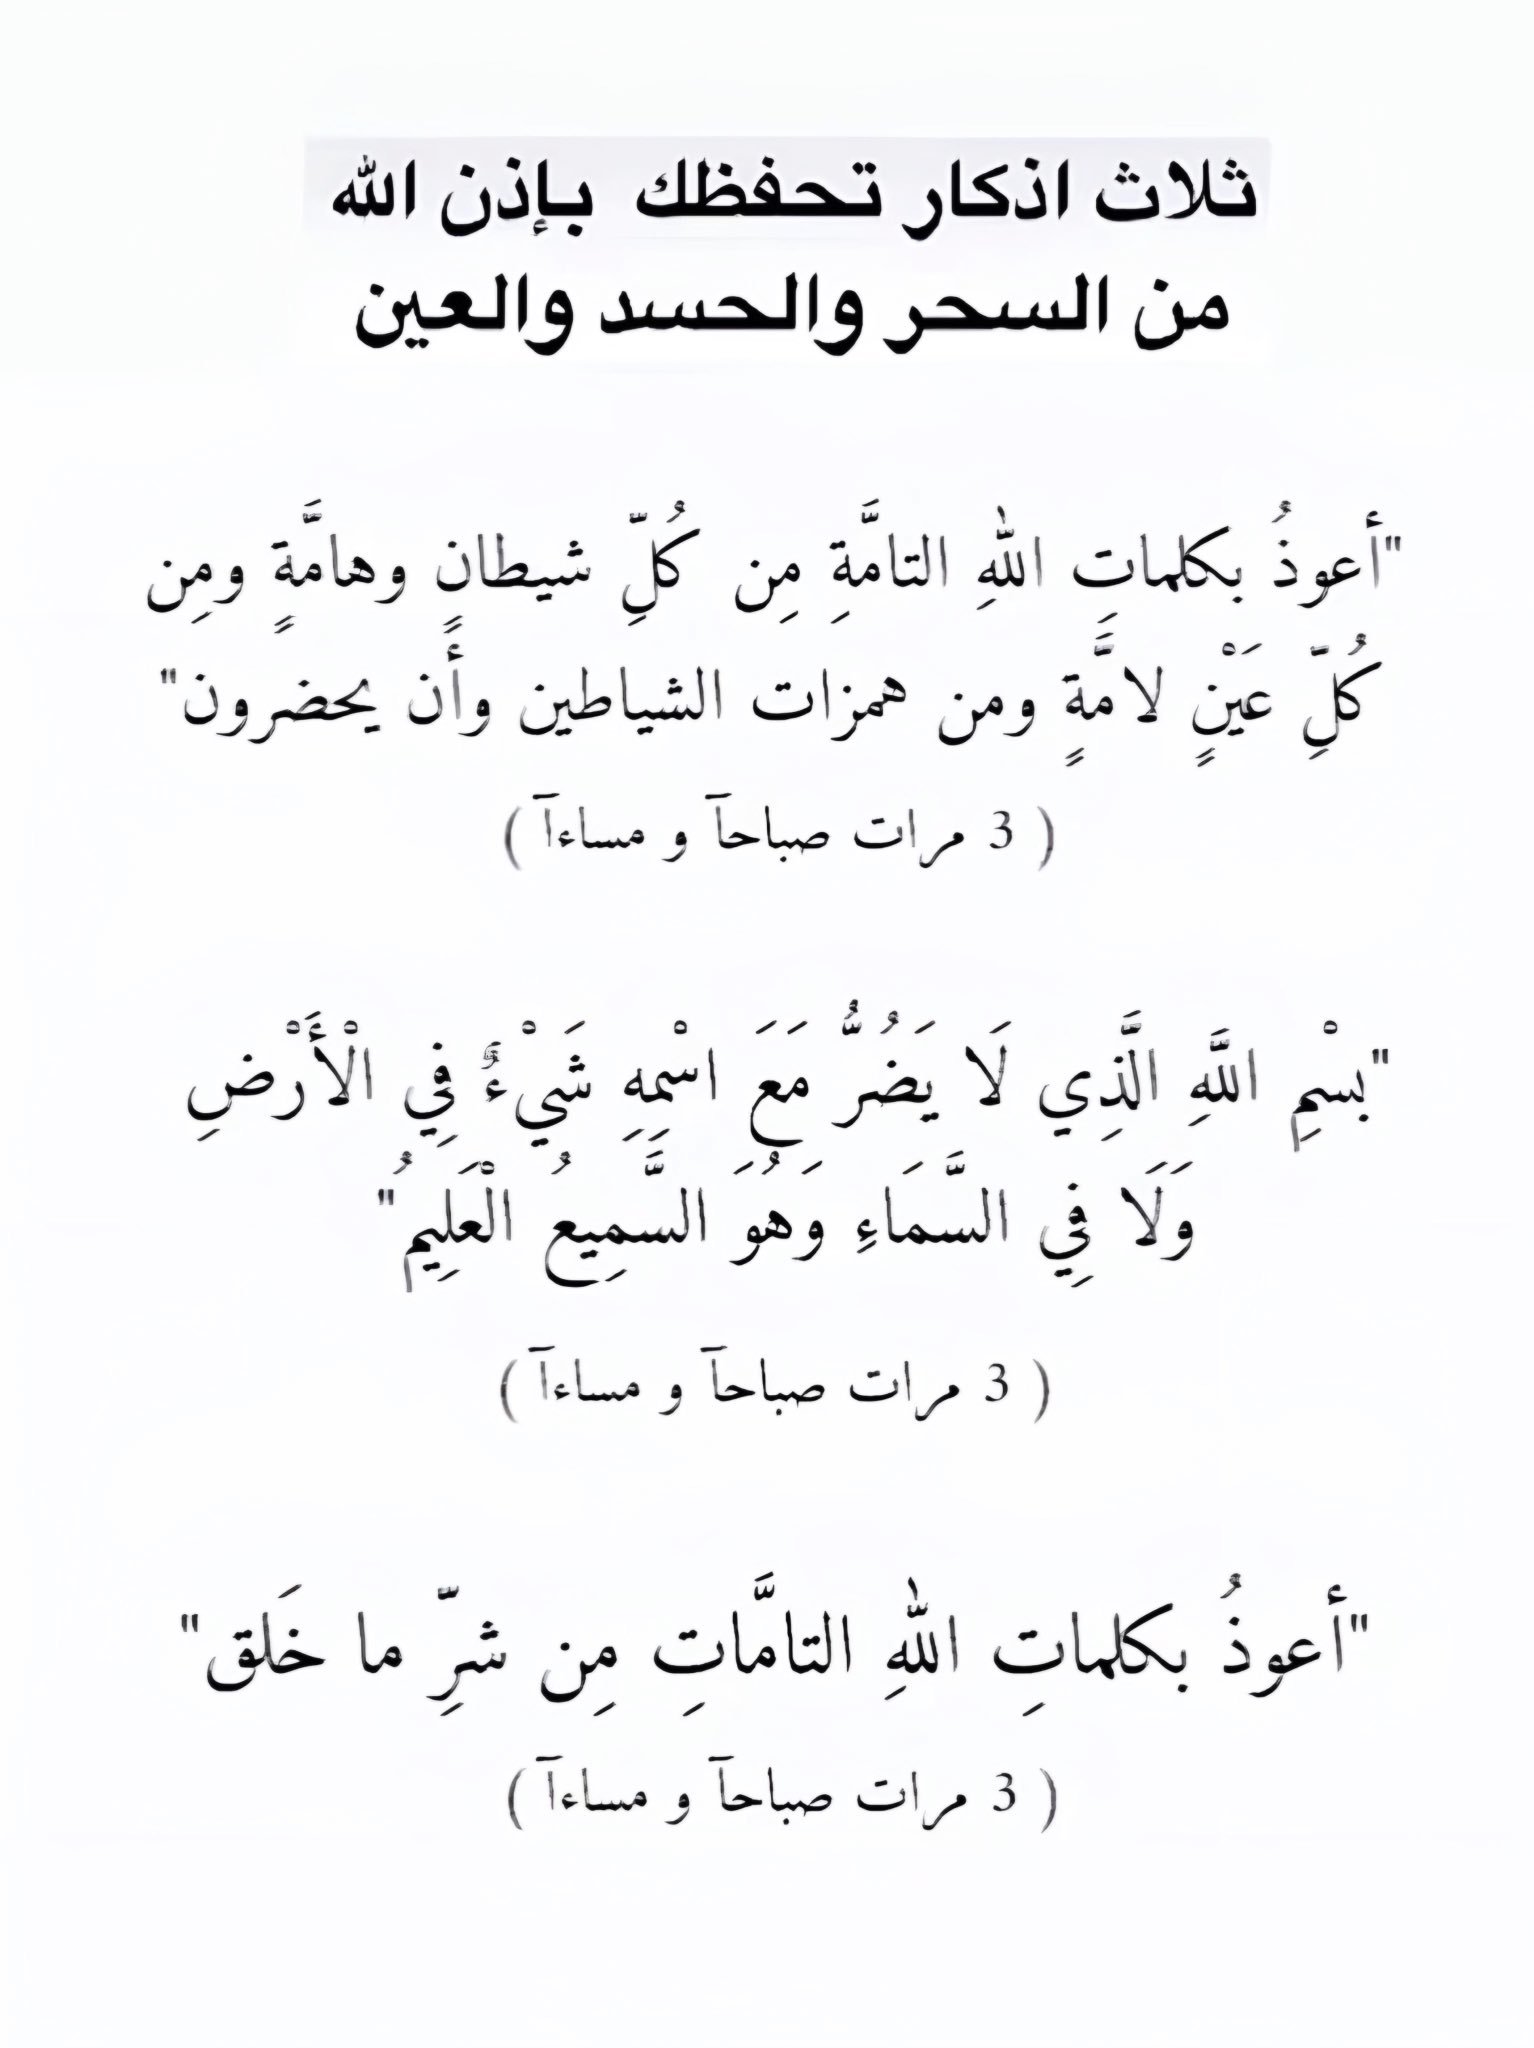 ثلاث اذكار تحفظك بإذن الله
من السحر والحسد والعين
"أعوذُ بكلماتِ اللهِ التامَّةِ مِن كُلِّ شيطانٍ وهامَّةٍ ومِن
كُلِّ عَيْنٍ لامَّةٍ ومن همزات الشياطين وأَن يحضرون"
( 3 مرات صباحآ و مساءآ )
"بسْمِ اللَّهِ الَّذِي لَا يَضُرُّ مَعَ اسْمِهِ شَيْءٌ فِي الْأَرْضِ
وَلَا فِي السَّمَاءِ وَهُوَ السَّمِيعُ الْعَلِيمُ"
( 3 مرات صباحآ و مساءآ )
"أعوذُ بكلماتِ اللهِ التامَّاتِ مِن شرِّ ما خَلق"
( 3 مرات صباحآ و مساءآ )